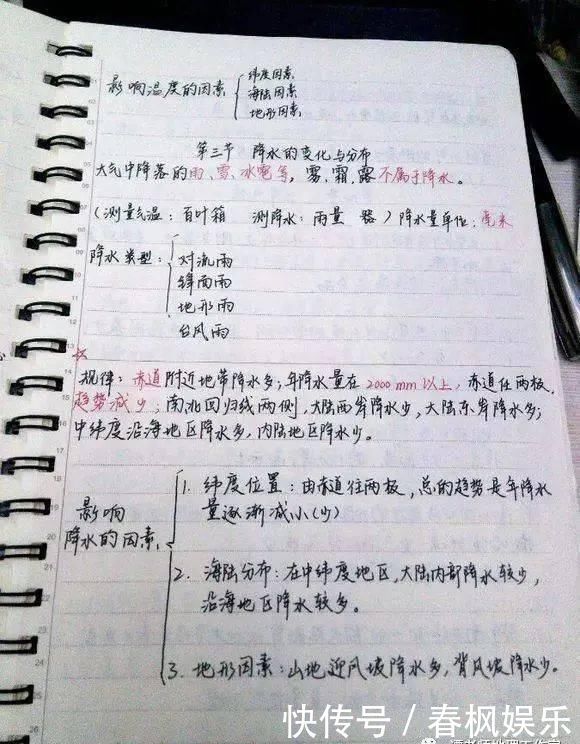 影响温度的因素
纬度因素
海陆因素
地形因素
第三节 降水的变化与分布
大气中降落的雨、雪、冰雹等,雾、霜、露不属于降水。
(测量气温:百叶箱 测降水:雨量 器)降水量单位:毫米
降水类型:
对流雨
锋面雨
地形雨
台风雨
☆
规律:赤道附近地带降水多;年降水量在2000mm以上,赤道往两极,
趋势减少;南北回归线两侧,大陆西岸降水少,大陆东岸降水多;
中纬度沿海地区降水多,内陆地区降水少。
影响
降水的因素
1. 纬度位置:由赤道往两极,总的趋势是年降水
量逐渐减小(少)
2. 海陆分布:在中纬度地区,大陆内部降水较少,
沿海地区降水较多。
3. 地形因素:山地迎风坡降水多,背风坡降水少。
快传号/春枫娱乐